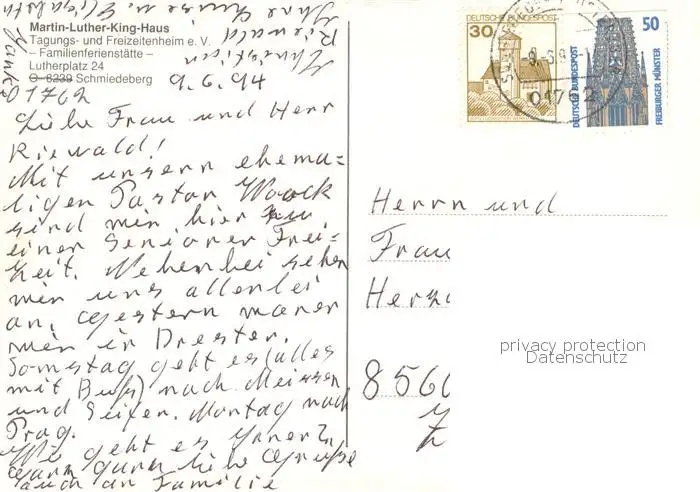 Martin-Luther-King-Haus
Tagungs- und Freizeitenheim e. V.
– Familienferienstätte –
Lutherplatz 24
O-8239 Schmiedeberg
01762
9.6.94
Liebe Frau und Herr
Riewald!
Mit unsern ehema=
ligen Pastor
sind wir hier zu
einer Senioren Frei=
heit. Nebenbei sehen
wir uns allerlei
an, gestern waren
wir in Dresten.
Somstag geht es (alles
mit Buß) nach Meissen
und Seifen. Montag nach
Prag.
Wie geht es Ihnen?
ganz liebe Grüße
auch an Familie
Christian
Riewald
Ihre
u. Elisabeth
DEUTSCHE BUNDESPOST
30
01762
50
DEUTSCHE BUNDESPOST
FREIBURGER MÜNSTER
Herrn und
Frau
privacy protection
Datenschutz